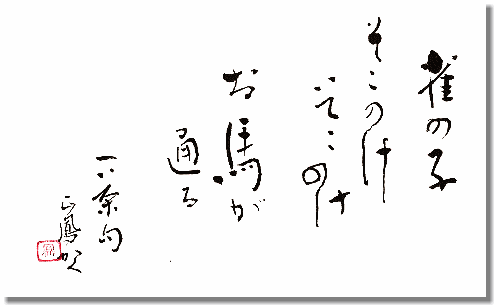 雀の子
そこのけ
そこのけ
お馬が
通る
一茶句